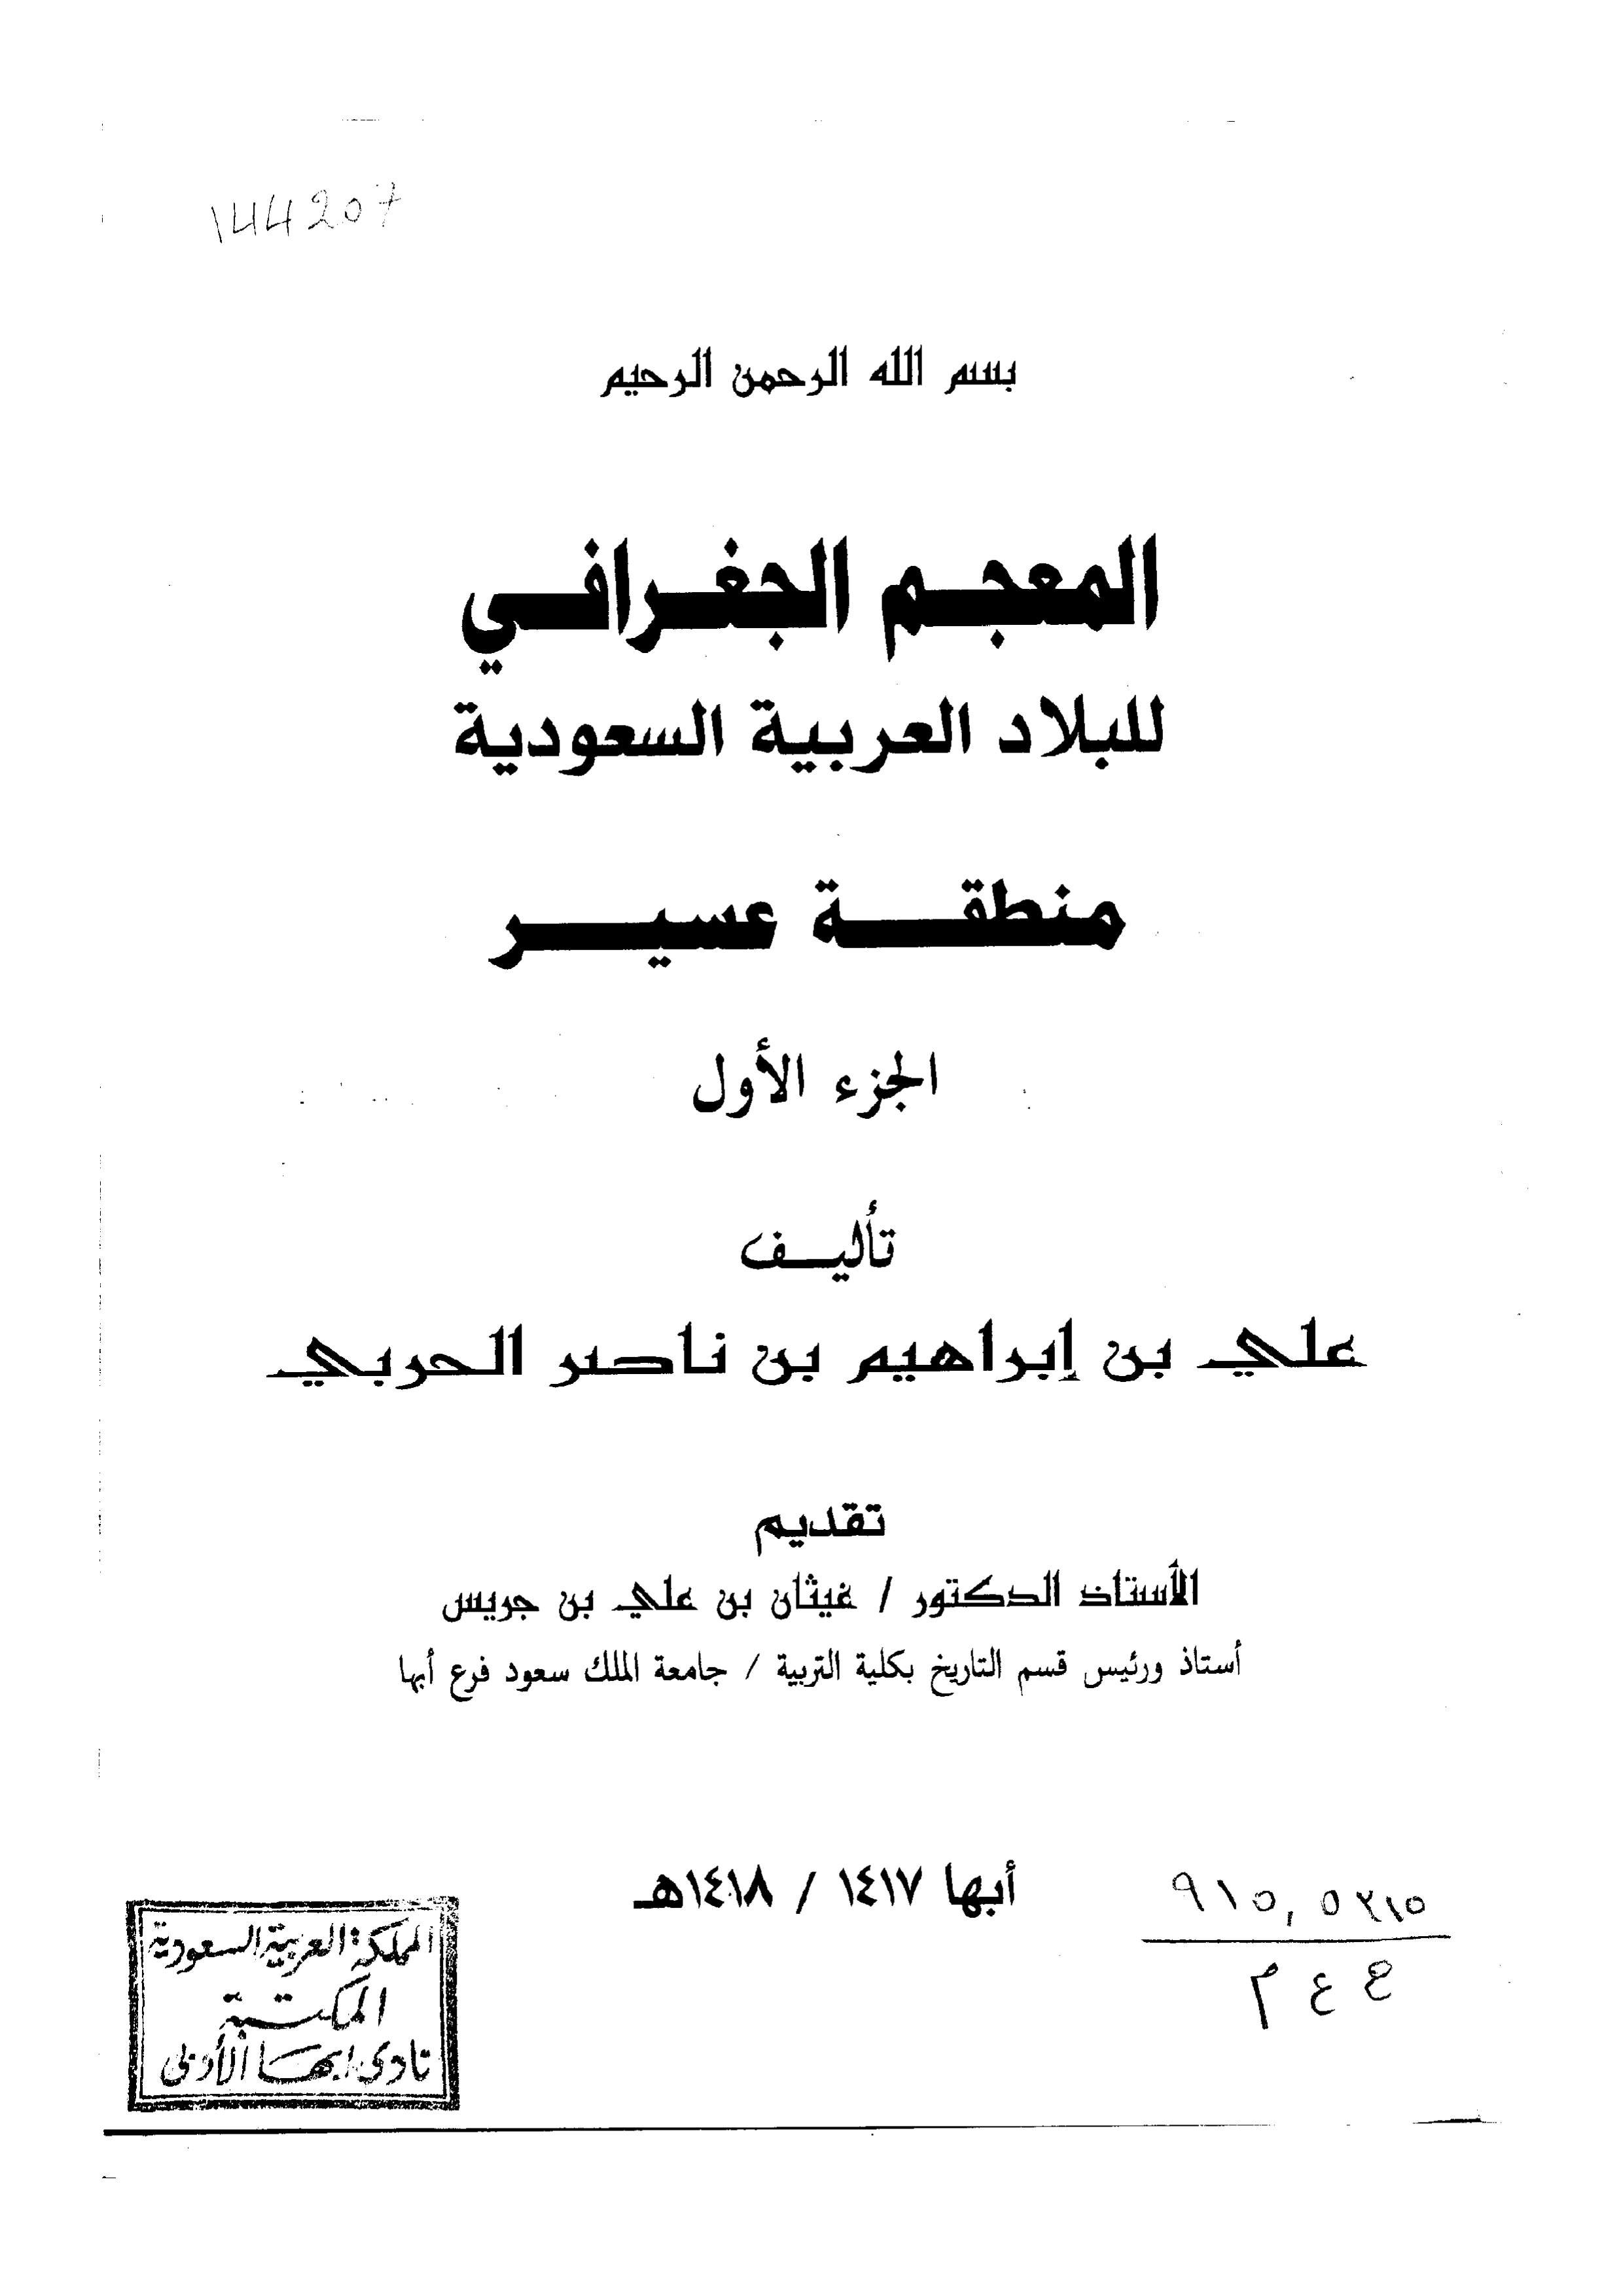 144207
بسم الله الرحمن الرحيم
المعجم الجغرافي
للبلاد العربية السعودية
منطقة عسير
الجزء الأول
تأليف
علي بن إبراهيم بن ناصر الحربي
تقديم
الأستاذ الدكتور / غيثان بن علي بن جريس
أستاذ ورئيس قسم التاريخ بكلية التربية / جامعة الملك سعود فرع أبها
أبها ١٤١٧ / ١٤١٨هـ
٩١٥,٥٣١٥
ع ع م
المملكة العربية السعودية
المكتبة
نادي ابها الأدبي